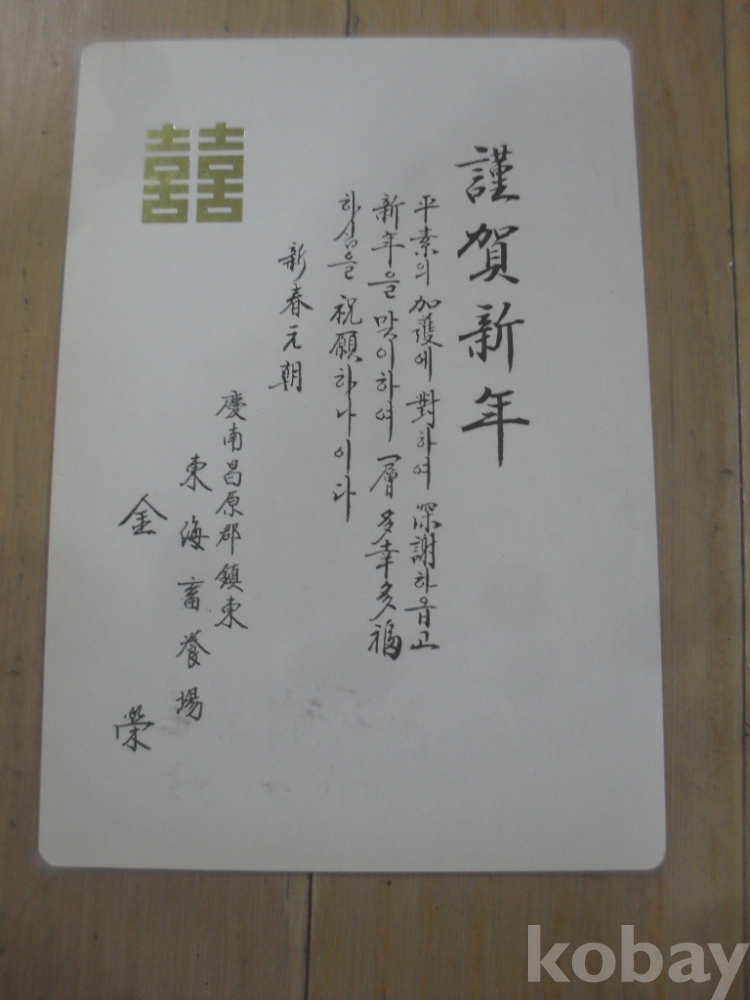 謹賀新年
平素의 加護에 對하여 深謝하옵고
新年을 맞이하여 一層 多幸多福
하심을 祝願하나이다
新春元朝
慶南昌原郡鎭東
東海畜養場
金 榮
囍
kobay